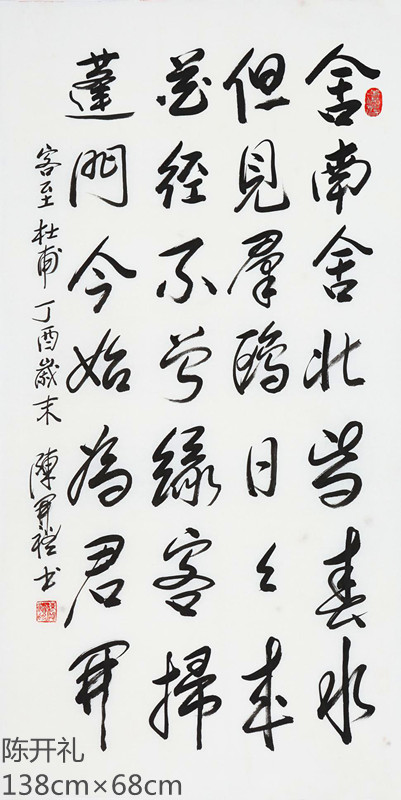 舍南舍北皆春水
但見羣鷗日日來
花徑不曾緣客掃
蓬門今始為君開
客至 杜甫 丁酉歲末 陳開禮書
陈开礼
138cm×68cm